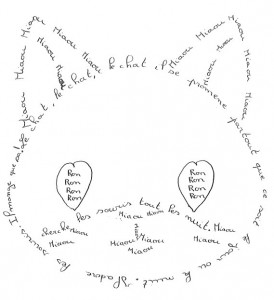 Miaou Miaou Miaou Miaou
Miaou Miaou Miaou
Miaou Miaou Miaou Miaou
Miaou Miaou Miaou
le chat, le chat, le chat, il se promène partout que ce soit le jour ou la nuit. Il adore les souris. Il mange que
Ron
Ron
Ron
Ron
Ron
Ron
Ron
Ron
cherche les souris tout les nuit.
Miaou Miaou
Miaou
Miaou Miaou
Miaou Miaou
Miaou
Miaou
Miaou